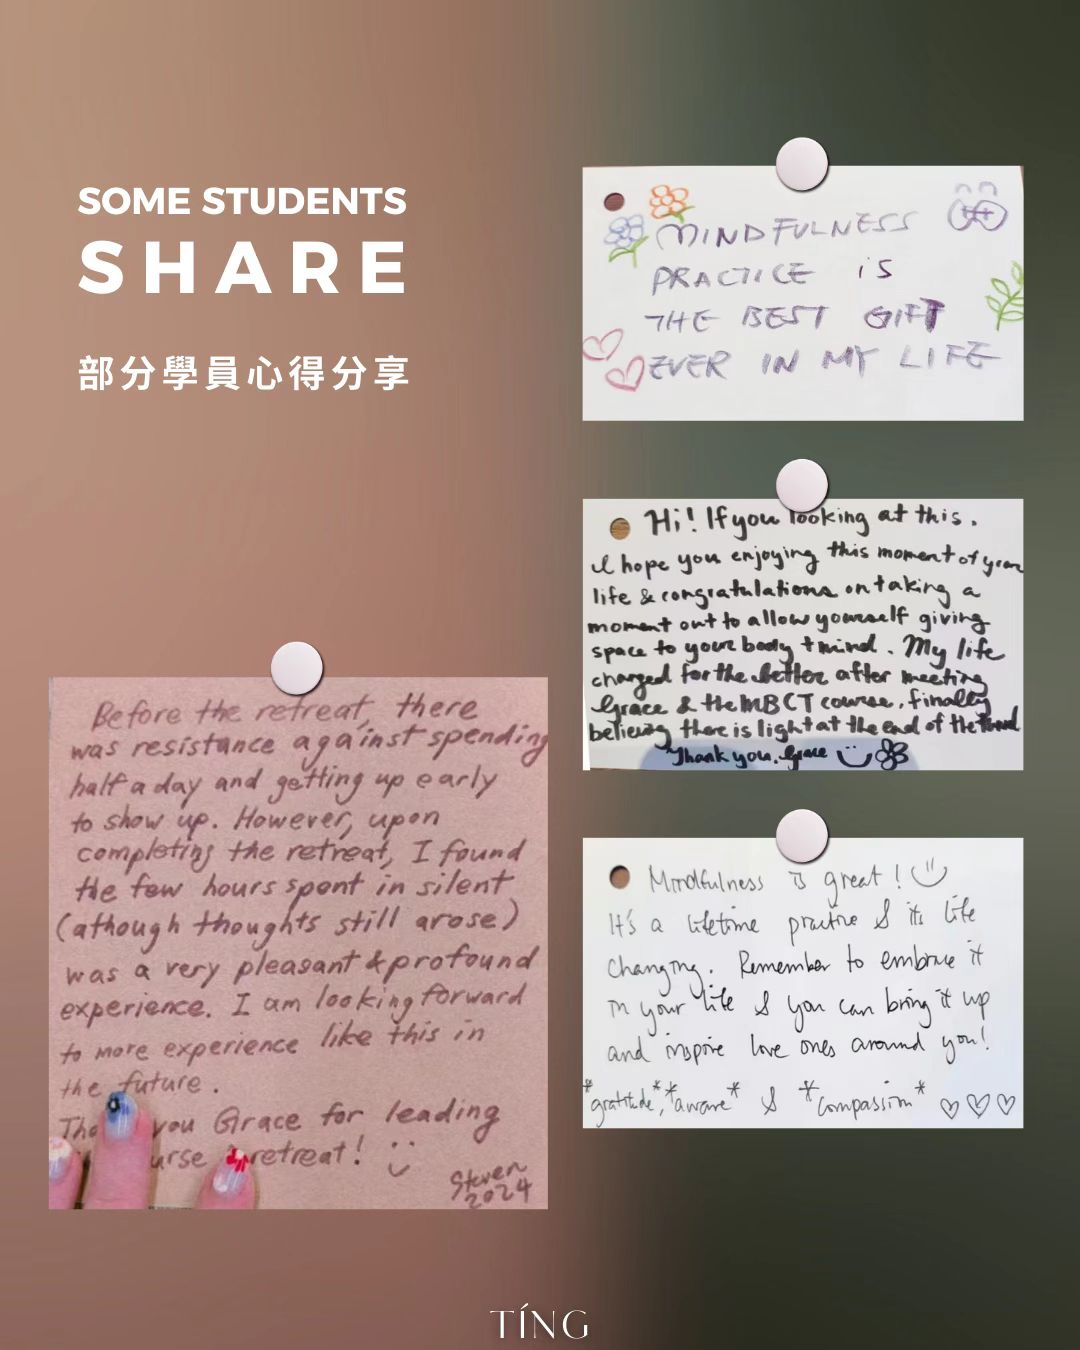 SOME STUDENTS
SHARE
部分學員心得分享
MINDFULNESS
PRACTICE is
THE BEST GIFT
EVER IN MY LIFE
Hi! If you looking at this.
I hope you enjoying this moment of your
life & congratulations on taking a
moment out to allow yourself giving
space to your body + mind. My life
changed for the better after meeting
Grace & the MBCT course, finally
believing there is light at the end of the
Thank you, Grace
Before the retreat, there
was resistance against spending
half a day and getting up early
to show up. However, upon
completing the retreat, I found
the few hours spent in silent
(athough thoughts still arose)
was a very pleasant & profound
experience. I am looking forward
to more experience like this in
the future.
you Grace for leading
retreat!
Steven
2024
Mindfulness is great!
It's a lifetime practice & its life
changing. Remember to embrace it
in your life & you can bring it up
and inspire love ones around you!
*gratitude*, *aware* & *compassion*
TÍNG